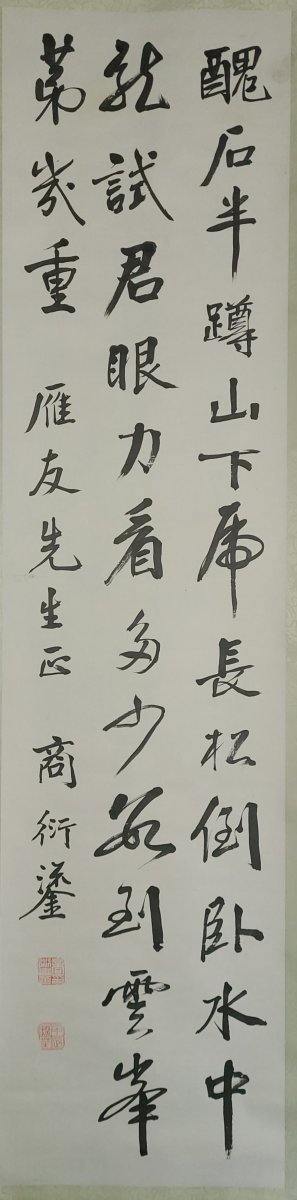 醜石半蹲山下虎長松倒臥水中
龍試君眼力看多少數到雲峯
苐幾重 雁友先生正 商衍鎏